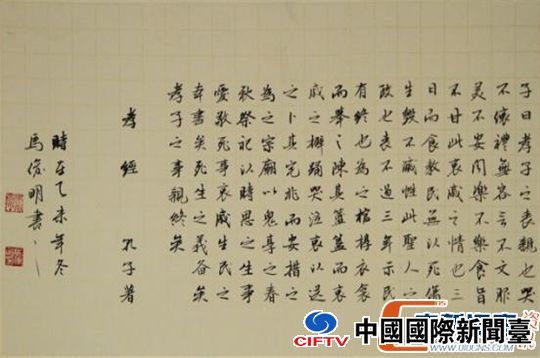 子曰孝子之喪親也哭
不偯禮無容言不文服
美不安聞樂不樂食旨
不甘此哀戚之情也三
日而食教民無以死傷
生毀不滅性此聖人之
政也喪不過三年示民
有終也為之棺椁衣衾
而舉之陳其簠簋而哀
戚之擗踊哭泣哀以送
之卜其宅兆而安措之
為之宗廟以鬼享之春
秋祭祀以時思之生事
愛敬死事哀戚生民之
本盡矣死生之義備矣
孝子之事親終矣
孝經 孔子著
時在乙未年冬
馬俊明書
CIFTV 中國國際新聞臺